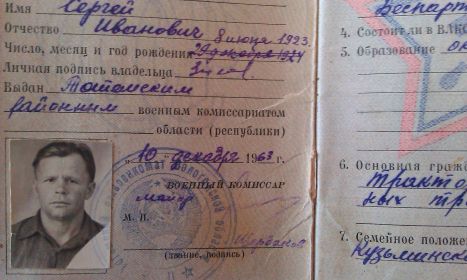 Имя Сергей
Отчество Иванович 8 июня 1923.
Число, месяц и год рождения
Личная подпись владельца
Выдан
районным военным комиссариатом
области (республики)
"10" декабря 1963 г.
ВОЕННЫЙ КОМИССАР
майор
М. П. Щербаков
(звание, подпись)
Беспарт
4. Состоит ли в ВЛКС
5. Образование
6. Основная граж
тракто
ных тр
7. Семейное положе
Кузьминск